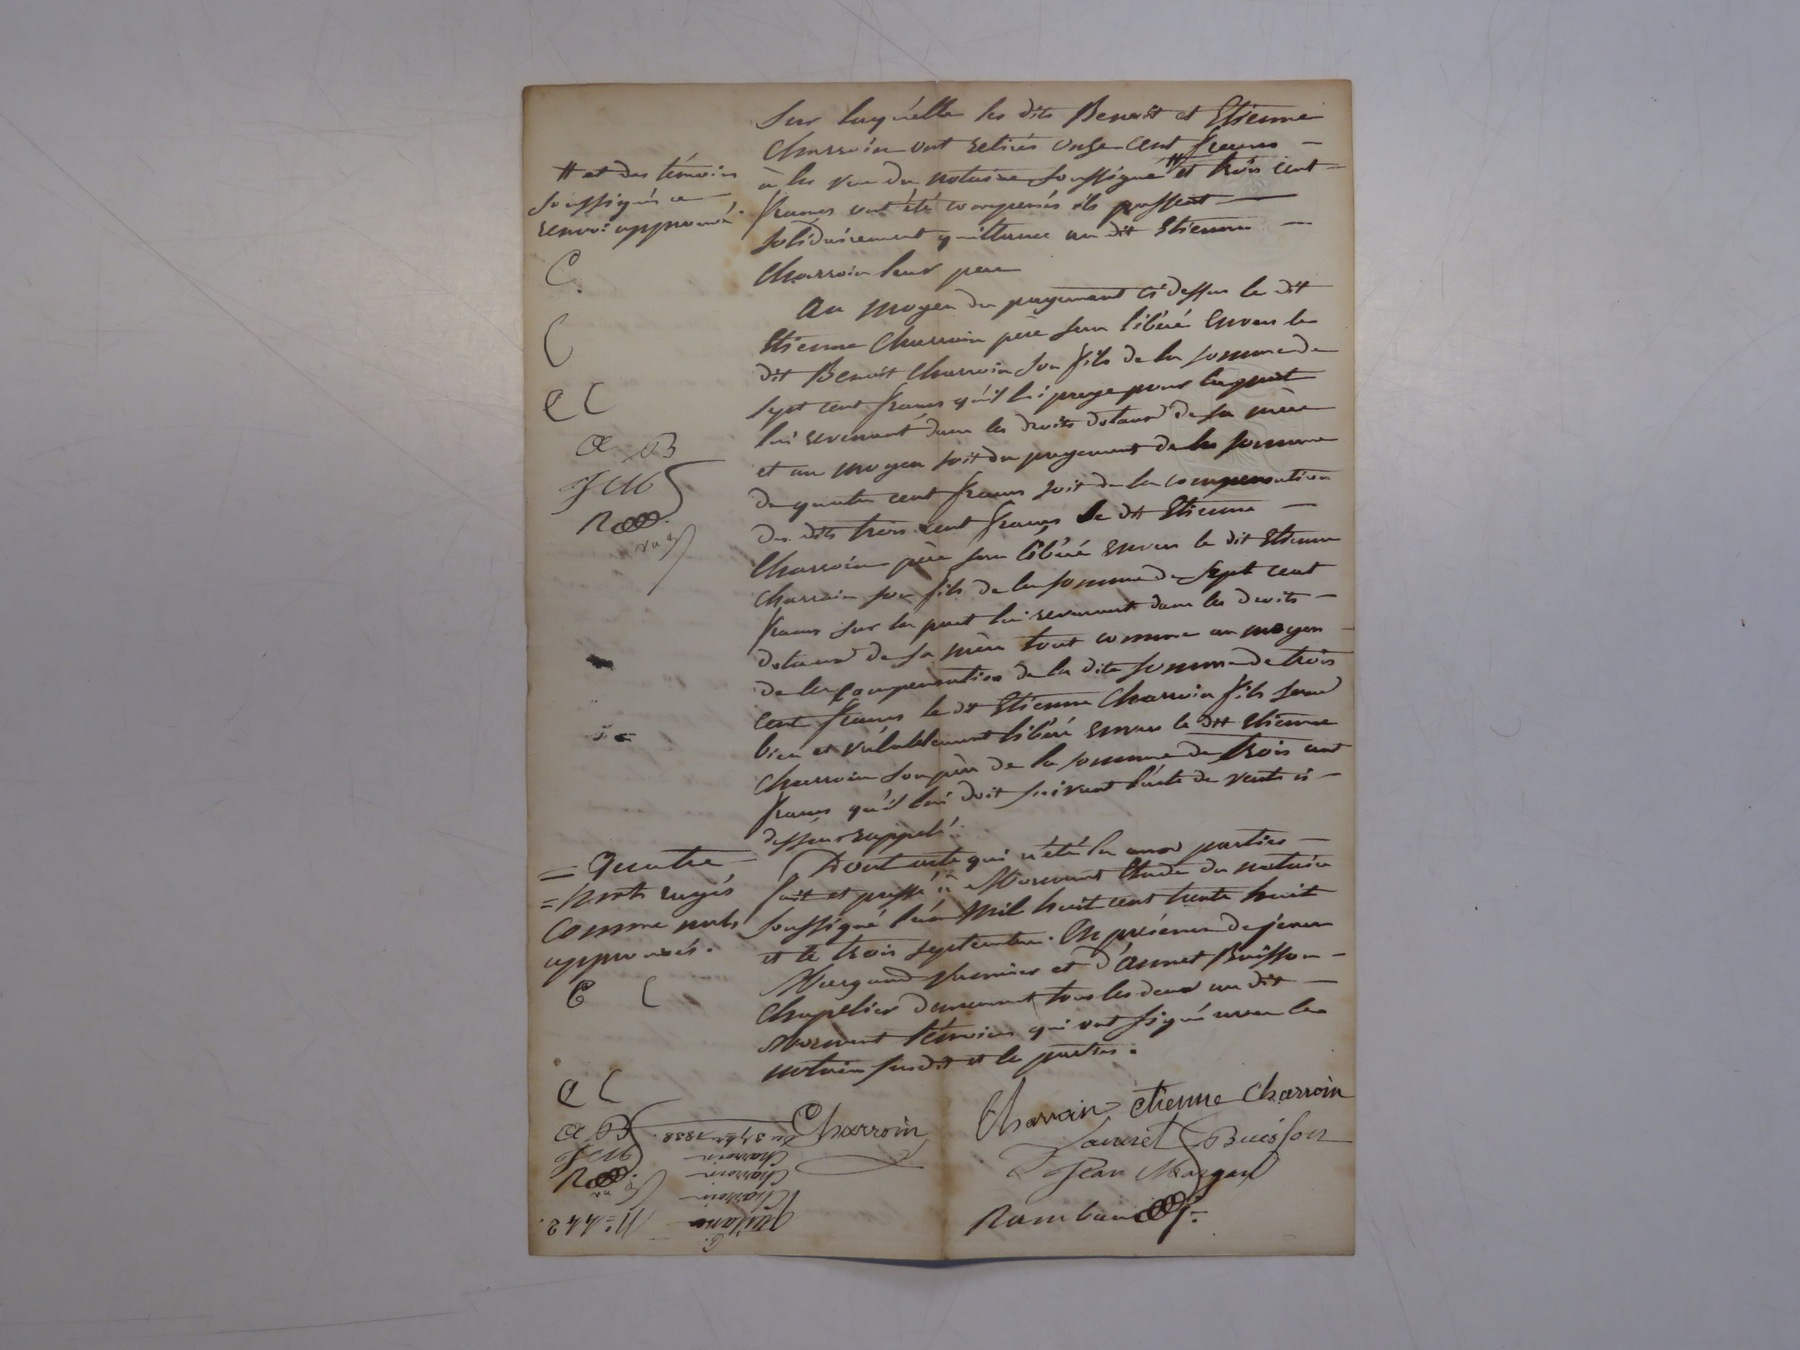 Sur laquelle les dits Benoit et Etienne
Charroin ont retirés onze cent francs
à la vue du notaire soussigné # et trois cent
francs ont été compensés ils passent
solidairement quittance au dit Etienne
Charroin leur père
# et des témoins
soussignés ce
renvoi approuvé.
C.
C
E C
A B
J M
R
Au moyen du payement ci dessus le dit
Etienne Charroin père sera libéré envers le
dit Benoit Charroin son fils de la somme de
sept cent francs qu'il lui paye pour la part
lui revenant dans les droits dotaux de sa mère
et au moyen soit du payement de la somme
de quatre cent francs soit de la compensation
des dits trois cent francs le dit Etienne
Charroin père sera libéré envers le dit Etienne
Charroin son fils de la somme de sept cent
francs sur la part lui revenant dans les droits
dotaux de sa mère tout comme au moyen
de la compensation de la dite somme de trois
cent francs le dit Etienne Charroin fils sera
bien et valablement libéré envers le dit Etienne
Charroin son père de la somme de trois cent
francs qu'il lui doit suivant l'acte de vente ci
dessus rappelé.
Dont acte qui a été lu aux parties
fait et passé à Mornant Etude du notaire
soussigné l'an mil huit cent trente huit
et le trois septembre. En présence de jean
Margand et d'annet Buisson
Chapelier demeurant tous les deux au dit
Mornant témoins qui ont signé avec le
notaire susdit et les parties.
= Quatre
= mots rayés
comme nuls
approuvés.
E C
E C
A B
J M
R
Charroin Charroin etienne Charroin
annet Buisson
Jean Margand
Rambaud
du 3 7bre 1838.
Charroin
Charroin
Charroin
Quittance
N° 442.